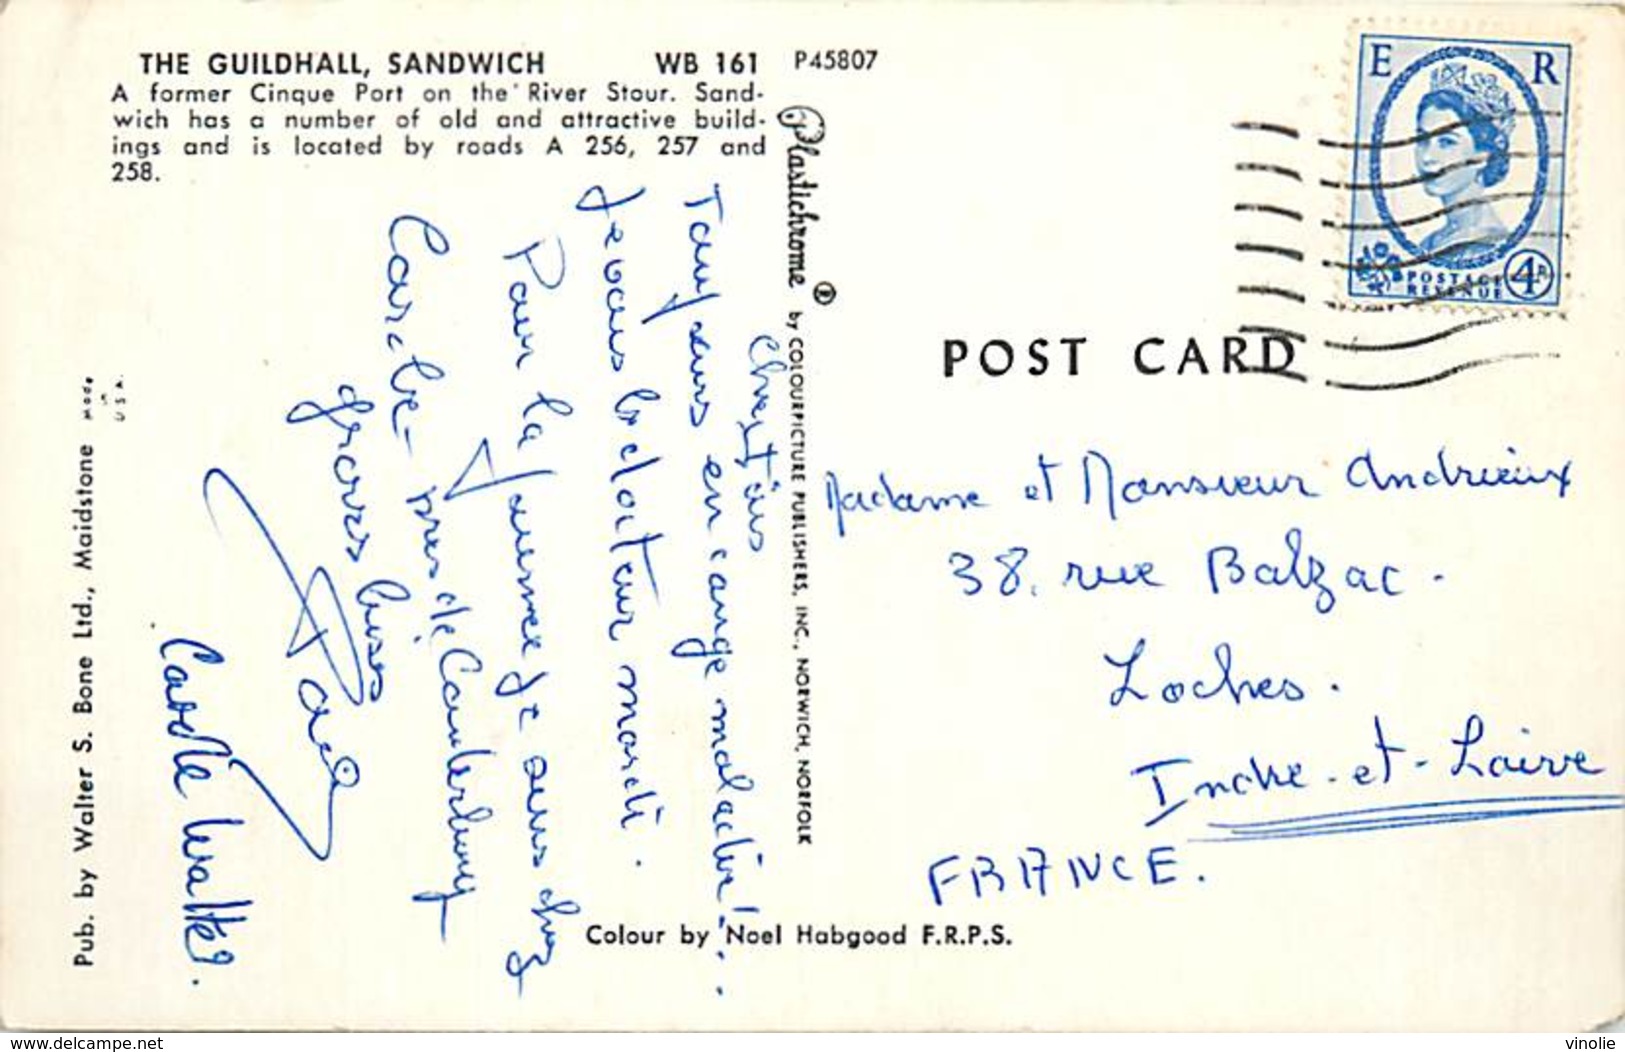 THE GUILDHALL, SANDWICH WB 161 P45807
A former Cinque Port on the River Stour. Sand-
wich has a number of old and attractive build-
ings and is located by roads A 256, 257 and
258.
Plastichrome ® by COLOURPICTURE PUBLISHERS, INC., NORWICH, NORFOLK
Pub. by Walter S. Bone Ltd., Maidstone
MADE
IN
U S A.
E R
POSTAGE
REVENUE
4D
POST CARD
Madame et Monsieur Andrieux
38, rue Balzac.
Loches.
Indre-et-Loire
FRANCE.
Toujours en congé maladie!...
Je vois le docteur mardi.
Pour la journée je suis chez
Carole près de Canterbury
grosses bises
Carole Walter.
Colour by Noel Habgood F.R.P.S.
www.delcampe.net
vinolie